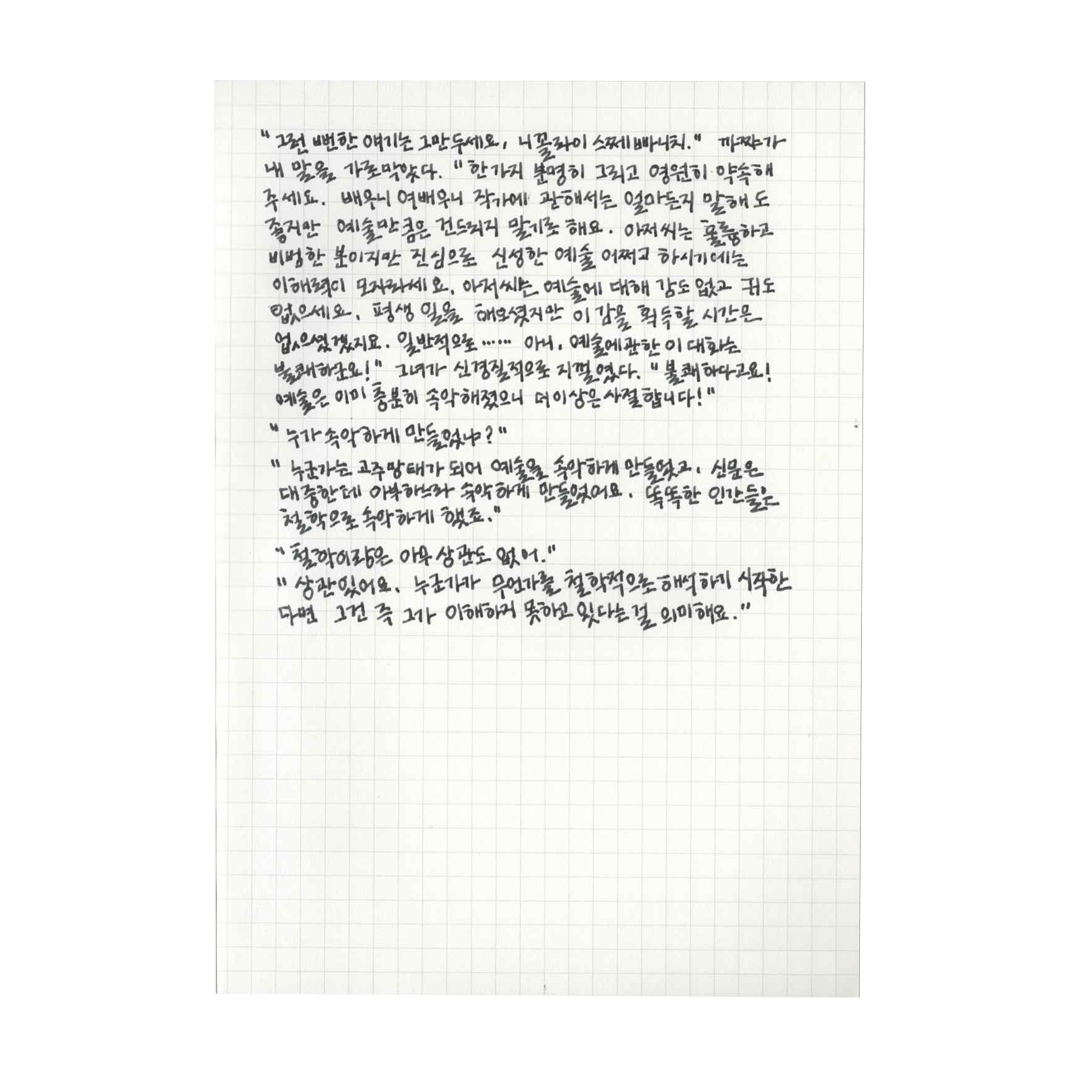 "그런 뻔한 얘기는 그만두세요, 니꼴라이 스쩨빠니치." 까쨔가
내 말을 가로막았다. "한가지 분명히 그리고 영원히 약속해
주세요. 배우니 여배우니 작가에 관해서는 얼마든지 말해도
좋지만 예술만큼은 건드리지 말기로 해요. 아저씨는 훌륭하고
비범한 분이지만 진심으로 신성한 예술 어쩌고 하시기에는
이해력이 모자라세요. 아저씨는 예술에 대해 감도 없고 귀도
없으세요. 평생 일을 해오셨지만 이 감을 획득할 시간은
없으셨겠지요. 일반적으로…… 아니, 예술에관한 이 대화는
불쾌하군요!" 그녀가 신경질적으로 지껄였다. "불쾌하다고요!
예술은 이미 충분히 속악해졌으니 더이상은 사절합니다!"
"누가 속악하게 만들었나?"
"누군가는 고주망태가 되어 예술을 속악하게 만들었고, 신문은
대중한테 아부하느라 속악하게 만들었어요. 똑똑한 인간들은
철학으로 속악하게 했죠."
"철학이랑은 아무 상관도 없어."
"상관있어요. 누군가가 무언가를 철학적으로 해석하기 시작한
다면 그건 즉 그가 이해하지 못하고 있다는 걸 의미해요."